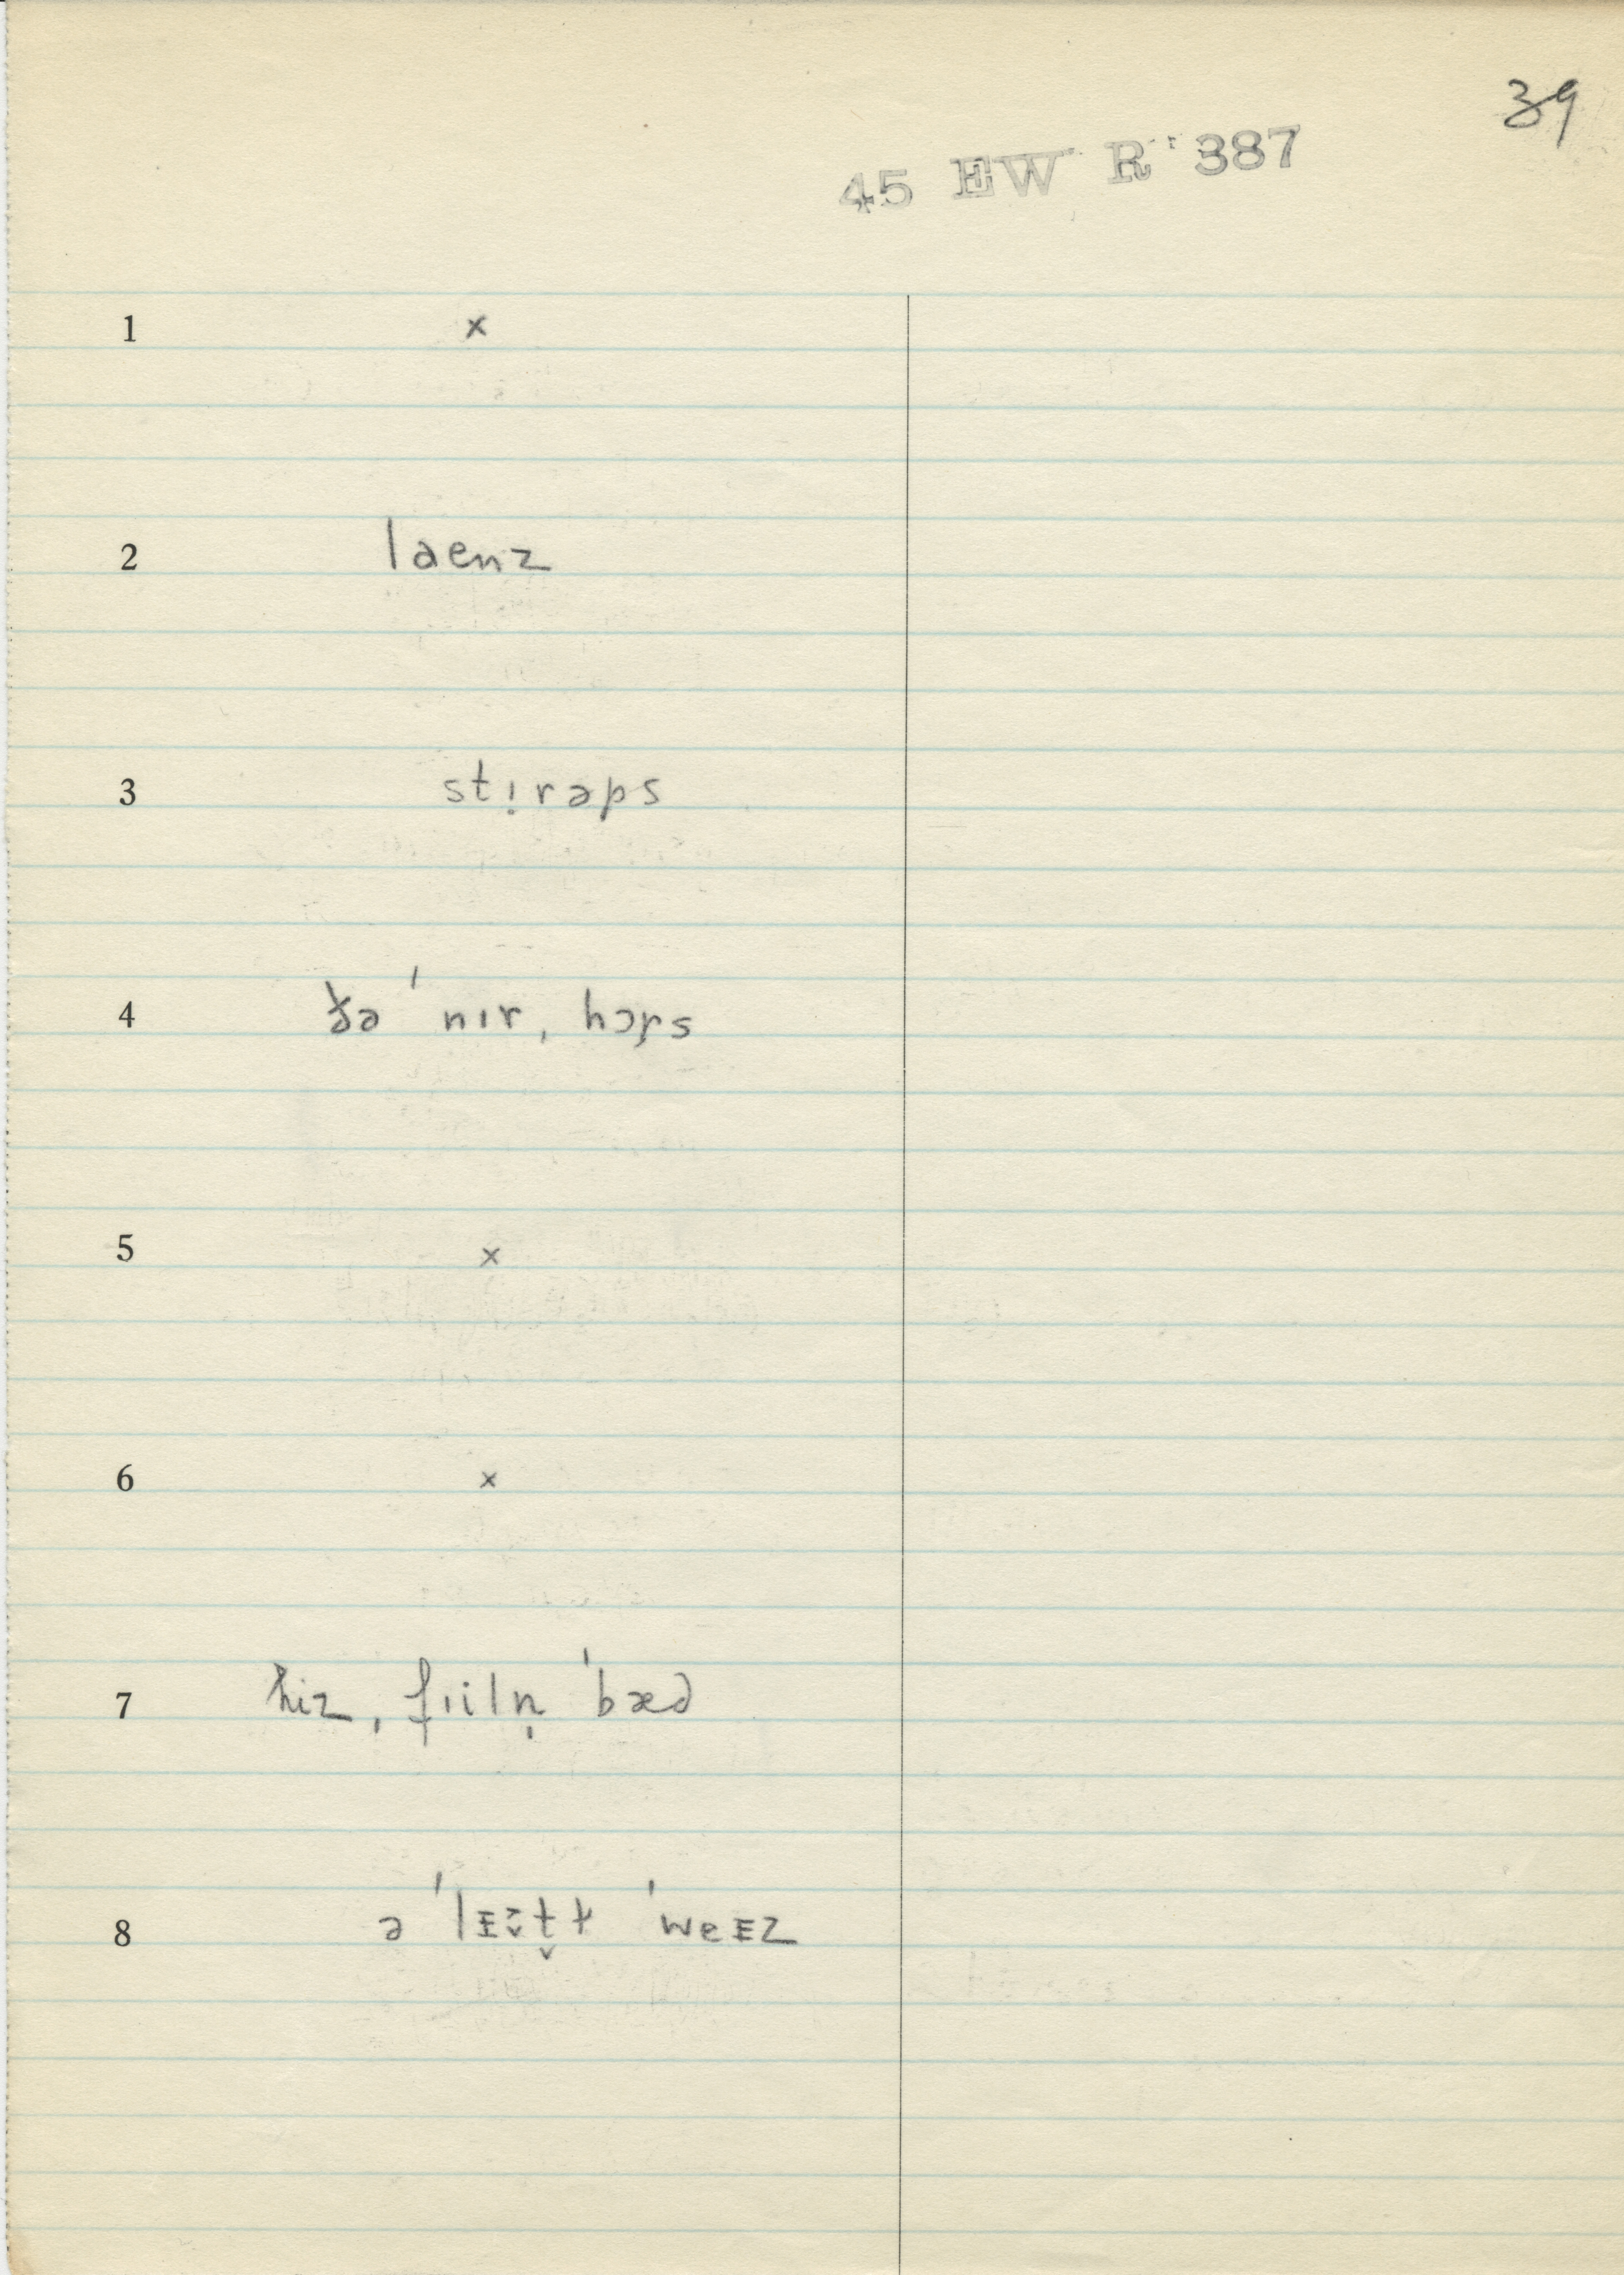 39
45 EW R 387
1 ×
2 laenz
3 stı̣rəps
4 ðə ˈnɪr ˌhɔr̥s
5 ×
6 ×
7 hiz ˌfɪilṇ ˈbæd
8 ə ˈlɪt̬ɫ ˈweᴇz